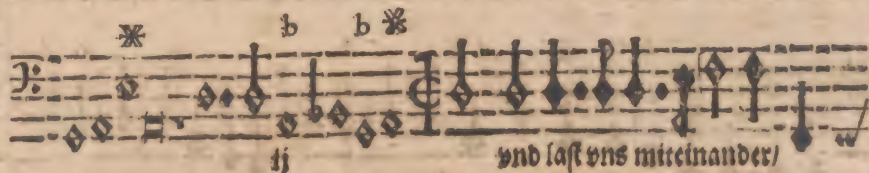 b b
ij vnd last vns miteinander/